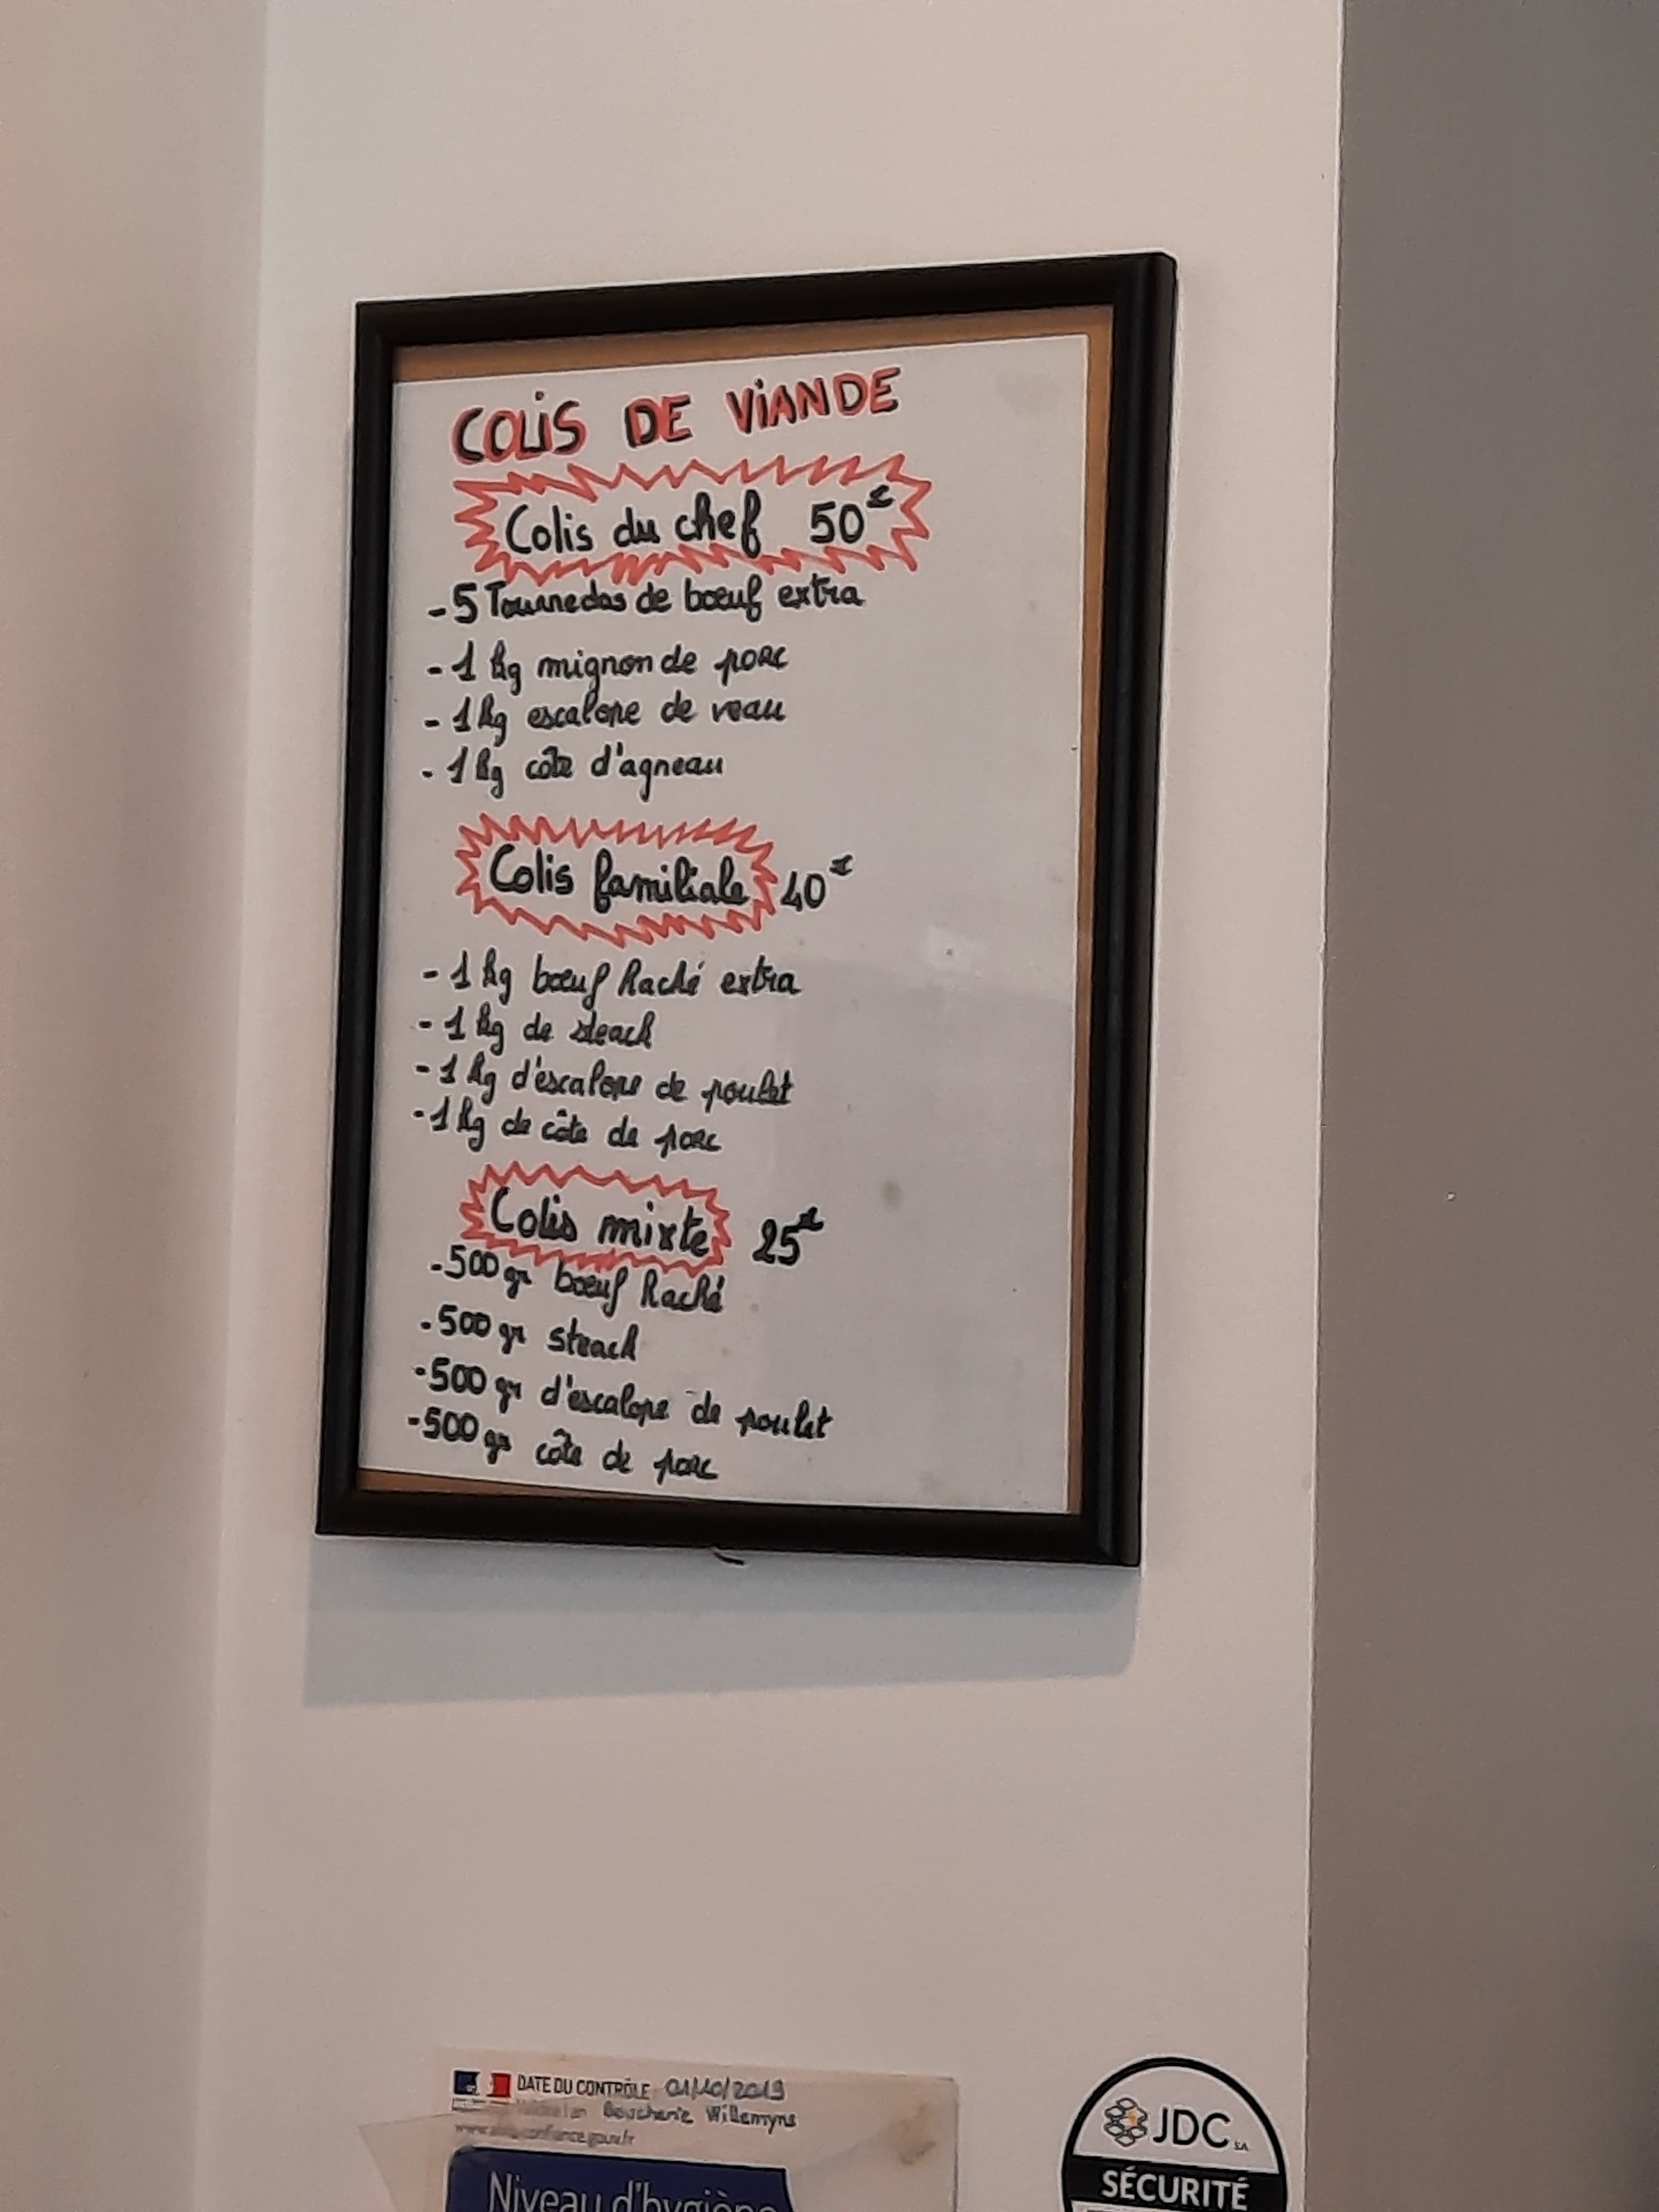 COLIS DE VIANDE
Colis du chef 50€
- 5 Tournedos de bœuf extra
- 1 kg mignon de porc
- 1 kg escalope de veau
- 1 kg côte d'agneau
Colis familiale 40€
- 1 kg bœuf haché extra
- 1 kg de steack
- 1 kg d'escalope de poulet
- 1 kg de côte de porc
Colis mixte 25€
- 500 gr bœuf haché
- 500 gr steack
- 500 gr d'escalope de poulet
- 500 gr côte de porc
DATE DU CONTRÔLE 01/10/2019
Boucherie Willemyns
confiance.gouv.fr
Niveau d'hygiène
JDC SA
SÉCURITÉ